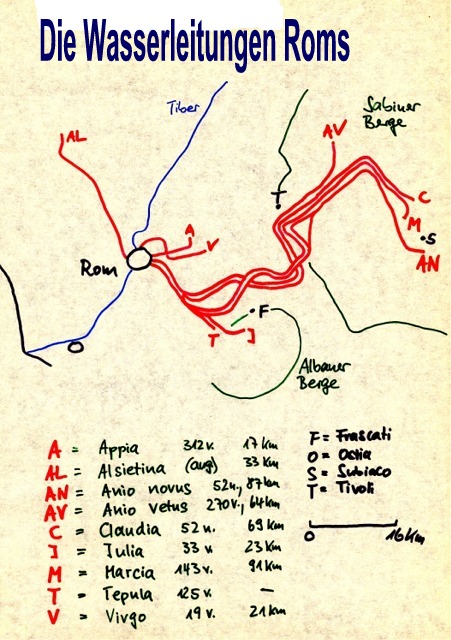 Die Wasserleitungen Roms
Tiber
Sabiner
Berge
AL
AV
T
A
V
C
M
S
AN
Rom
F
T
J
Albaner
Berge
A = Appia 312v. 17 km
AL = Alsietina (aug) 33 km
AN = Anio novus 52n., 87 km
AV = Anio vetus 270v., 64 km
C = Claudia 52 n. 69 km
J = Julia 33 v. 23 km
M = Marcia 143 v. 91 km
T = Tepula 125 v. —
V = Virgo 19 v. 21 km
F = Frascati
O = Ostia
S = Subiaco
T = Tivoli
0 16 km